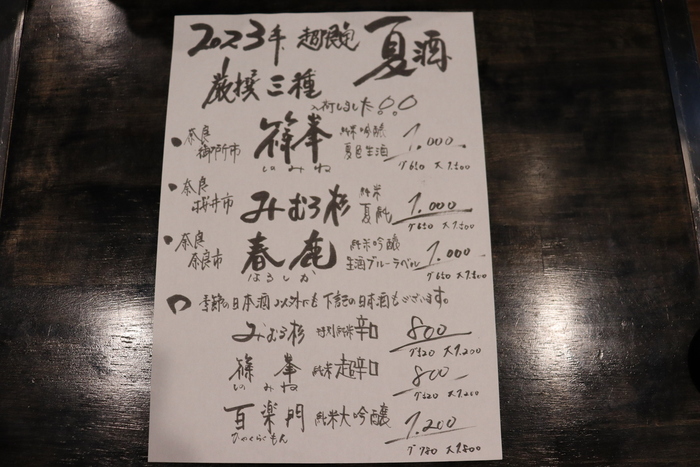 2023年 超限定 夏酒
厳撰三種
入荷しました!!
奈良 御所市 篠峯 純米吟醸 夏色生酒 1,000
しのみね グ650 大1,500
奈良 桜井市 みむろ杉 純米 夏純 1,000
グ650 大1,500
奈良 奈良市 春鹿 純米吟醸 生酒ブルーラベル 1,000
はるしか グ650 大1,500
季節の日本酒以外にも下記の日本酒もございます。
みむろ杉 特別純米辛口 800
グ520 大1,200
篠峯 純米超辛口 800
しのみね グ520 大1,200
百楽門 純米大吟醸 1,200
ひゃくらくもん グ780 大1,800